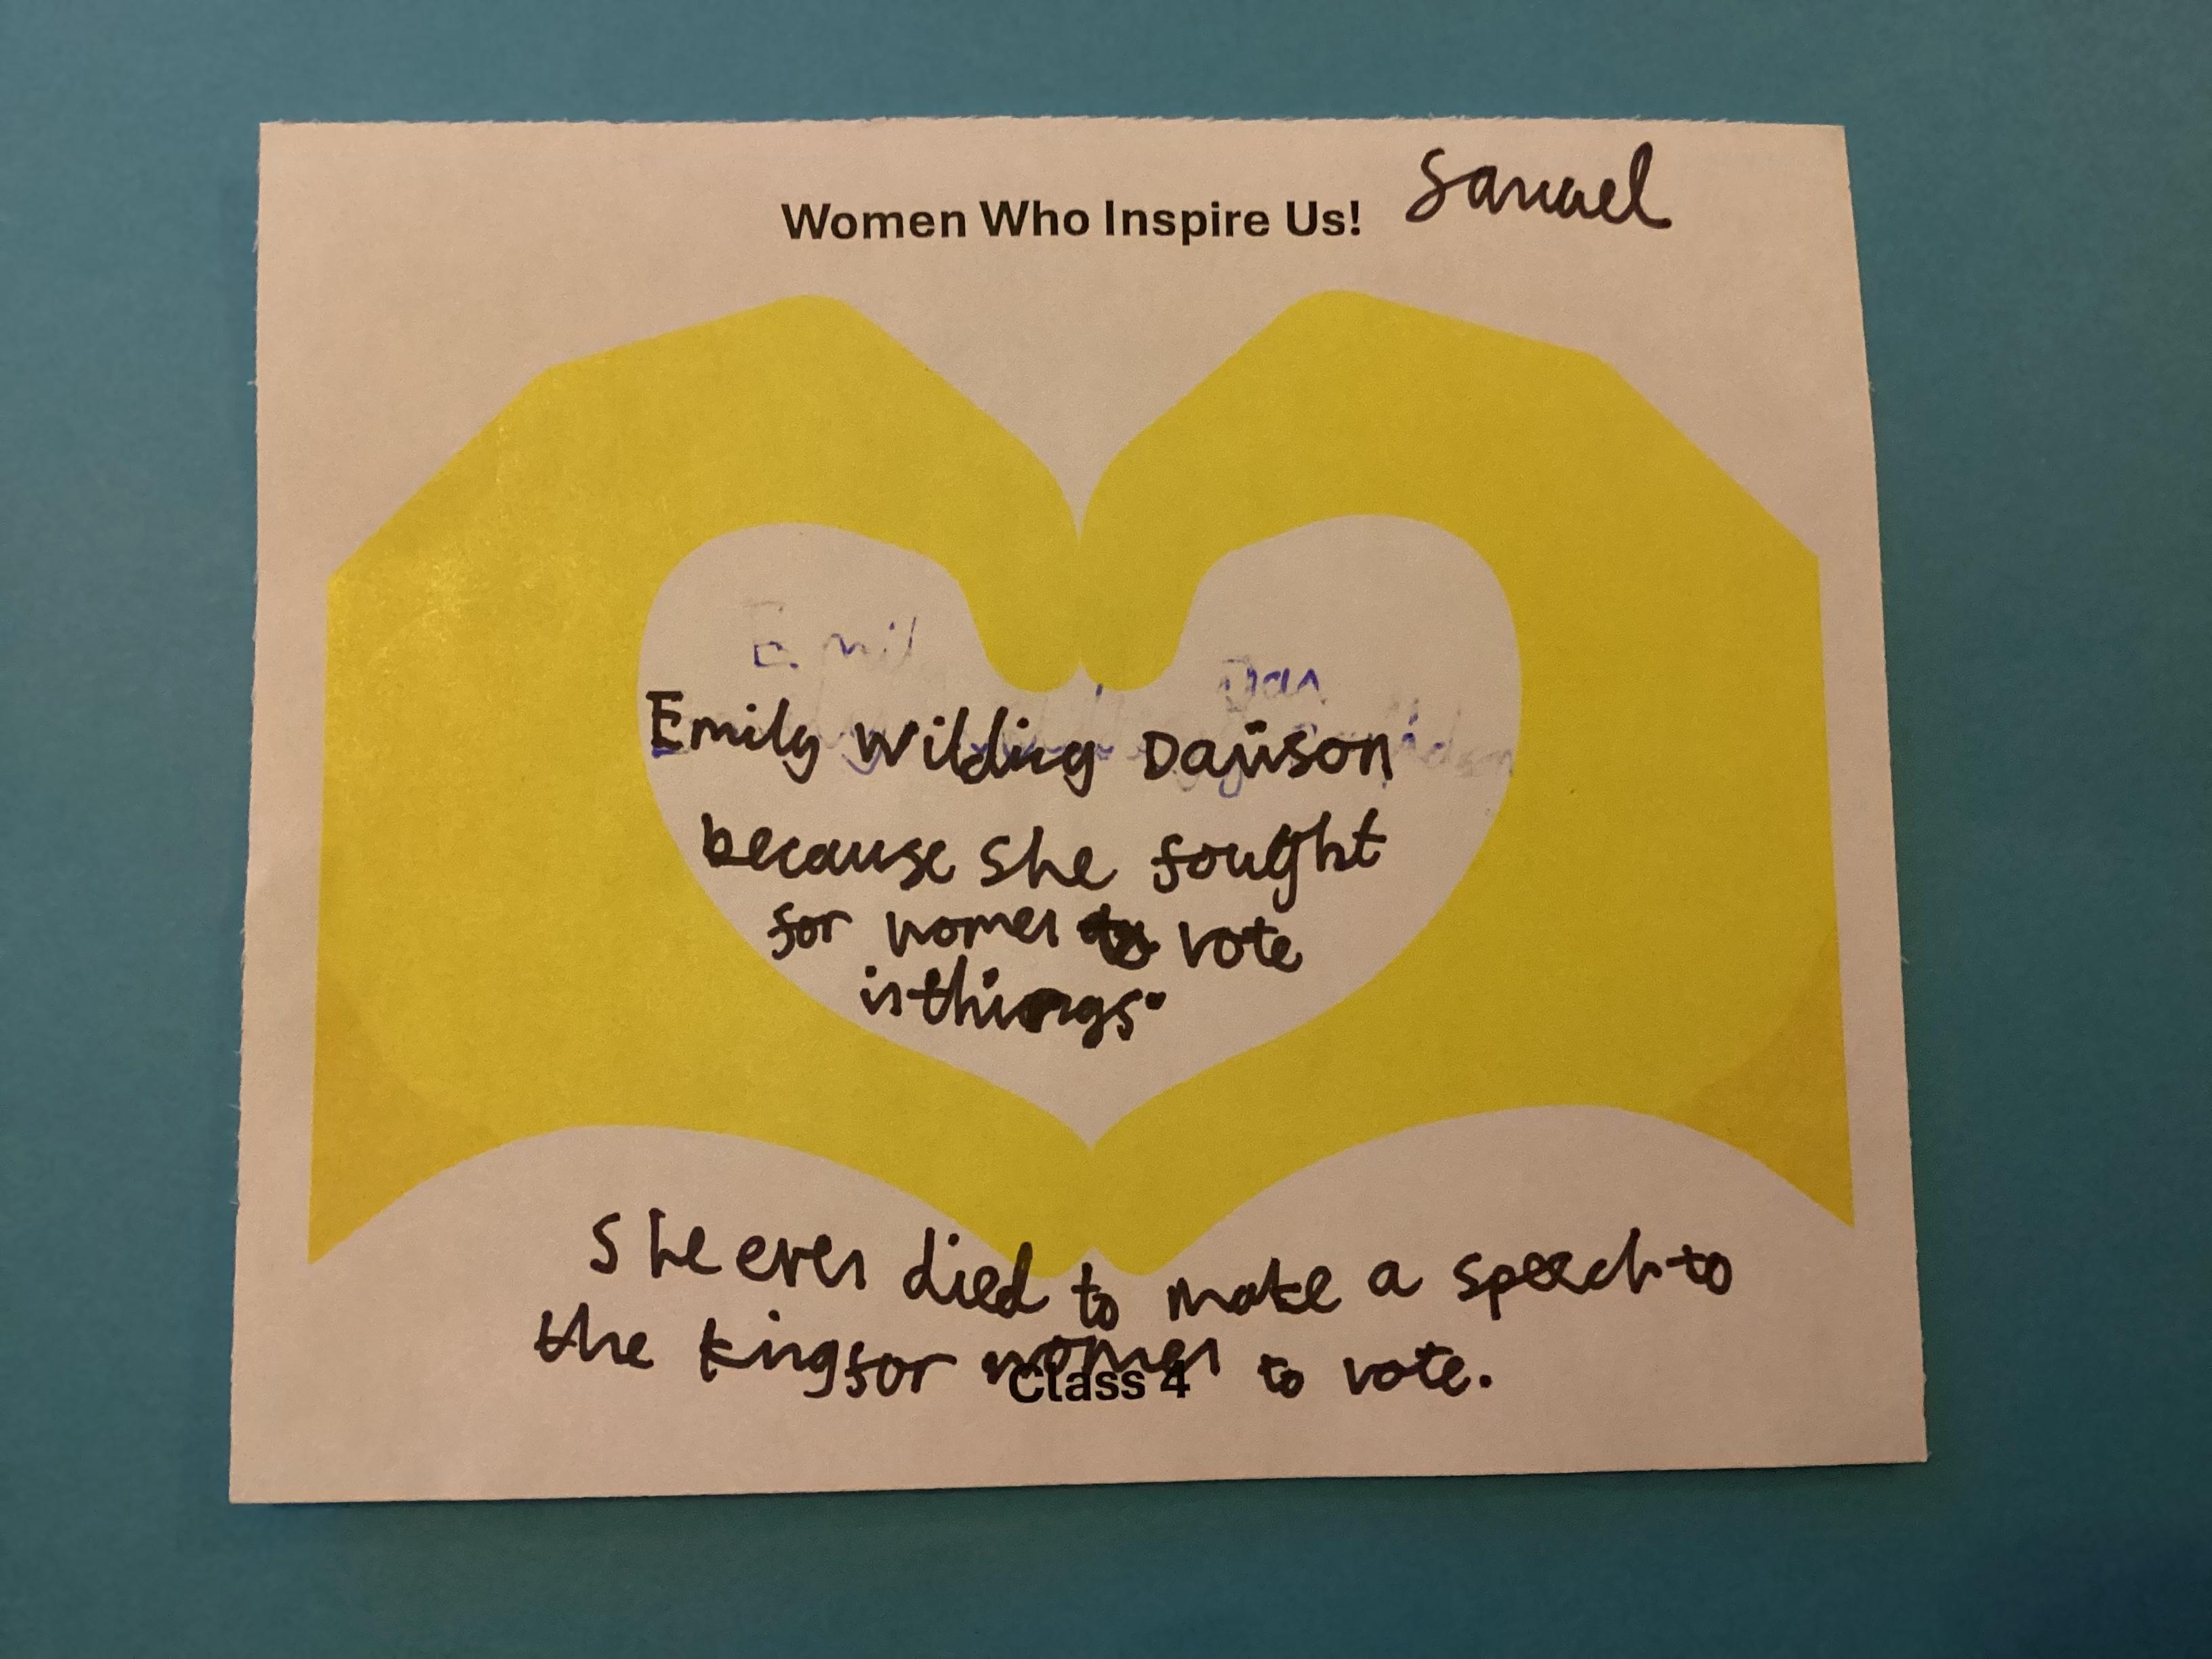 Women Who Inspire Us! Samuel
Emil
Dav
Emily Wilding Davison
because she fought
for women to vote
in things.
She even died to make a speech to
the king for women to vote.
Class 4